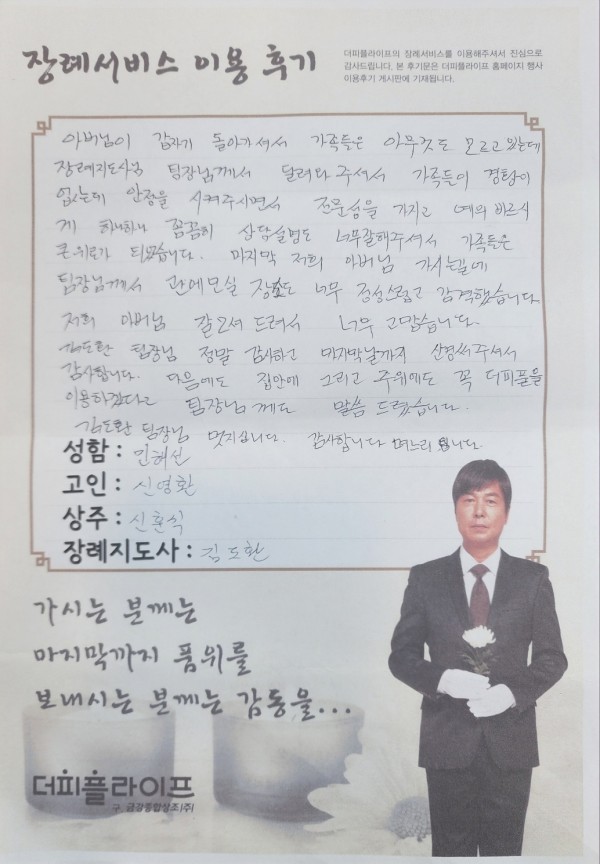 장례서비스 이용 후기
더피플라이프의 장례서비스를 이용해주셔서 진심으로
감사드립니다. 본 후기문은 더피플라이프 홈페이지 행사
이용후기 게시판에 기재됩니다.
아버님이 갑자기 돌아가셔서 가족들은 아무것도 모르고 있는데
장례지도사님 팀장님께서 달려와 주셔서 가족들이 경황이
없는데 안정을 시켜주시면서 전문성을 가지고 예의 바르시
게 하나하나 꼼꼼히 상담설명도 너무잘해주셔서 가족들은
큰위로가 되었습니다. 마지막 저희 아버님 가시는길에
팀장님께서 관에모실 장소도 너무 정성스럽고 감격했습니다
저희 아버님 잘모셔 드려서 너무 고맙습니다.
김도환 팀장님 정말 감사하고 마지막날까지 신경써주셔서
감사합니다. 다음에도 집안에 그리고 주위에도 꼭 더피플을
이용하겠다고 팀장님께도 말씀 드렸습니다.
김도환 팀장님 멋지십니다. 감사합니다 며느리 됩니다.
성함 : 민혜선
고인 : 신영환
상주 : 신훈식
장례지도사 : 김도환
가시는 분께는
마지막까지 품위를
보내시는 분께는 감동을...
더피플라이프
구. 금강종합상조(주)